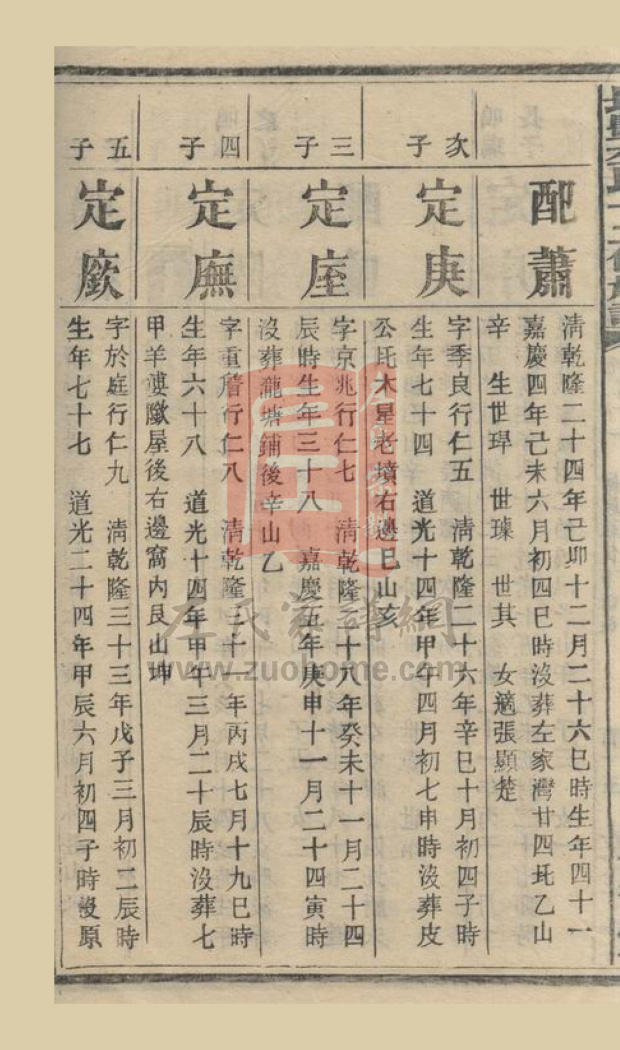 配蕭
清乾隆二十四年己卯十二月二十六巳時生年四十一
嘉慶四年己未六月初四巳時沒葬左家灣廿四坵乙山
辛 生世琩 世瑧 世其 女適張顯楚
次子
定庚
字季良行仁五 清乾隆二十六年辛巳十月初四子時
生年七十四 道光十四年甲午四月初七申時沒葬皮
公坵木星老墳右邊巳山亥
三子
定座
字京兆行仁七 清乾隆二十八年癸未十一月二十四
辰時生年三十八 嘉慶五年庚申十一月二十四寅時
沒葬瀧塘鋪後辛山乙
四子
定廡
字重簷行仁八 清乾隆三十一年丙戌七月十九巳時
生年六十八 道光十四年甲午三月二十辰時沒葬七
甲羊屋後右邊窩內艮山坤
五子
定廞
字於庭行仁九 清乾隆三十三年戊子三月初二辰時
生年七十七 道光二十四年甲辰六月初四子時沒原
左氏家譜網
www.zuohome.com